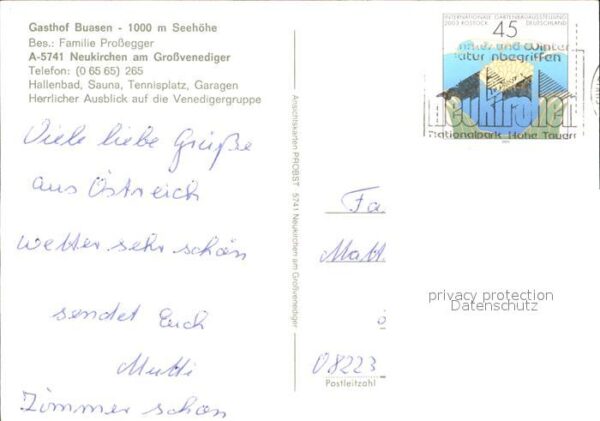 Gasthof Buasen - 1000 m Seehöhe
Bes.: Familie Proßegger
A-5741 Neukirchen am Großvenediger
Telefon: (0 65 65) 265
Hallenbad, Sauna, Tennisplatz, Garagen
Herrlicher Ausblick auf die Venedigergruppe
Viele liebe Grüße
aus Östreich
Wetter sehr schön
sendet Euch
Mutti
Zimmer schön
Ansichtskarten PROBST 5741 Neukirchen am Großvenediger
INTERNATIONALE GARTENBAUAUSSTELLUNG
2003 ROSTOCK DEUTSCHLAND
45
und Winter
Natur inbegriffen
Neukirchen
Nationalpark Hohe Tauern
Fa.
Matt
08223
Postleitzahl
privacy protection
Datenschutz